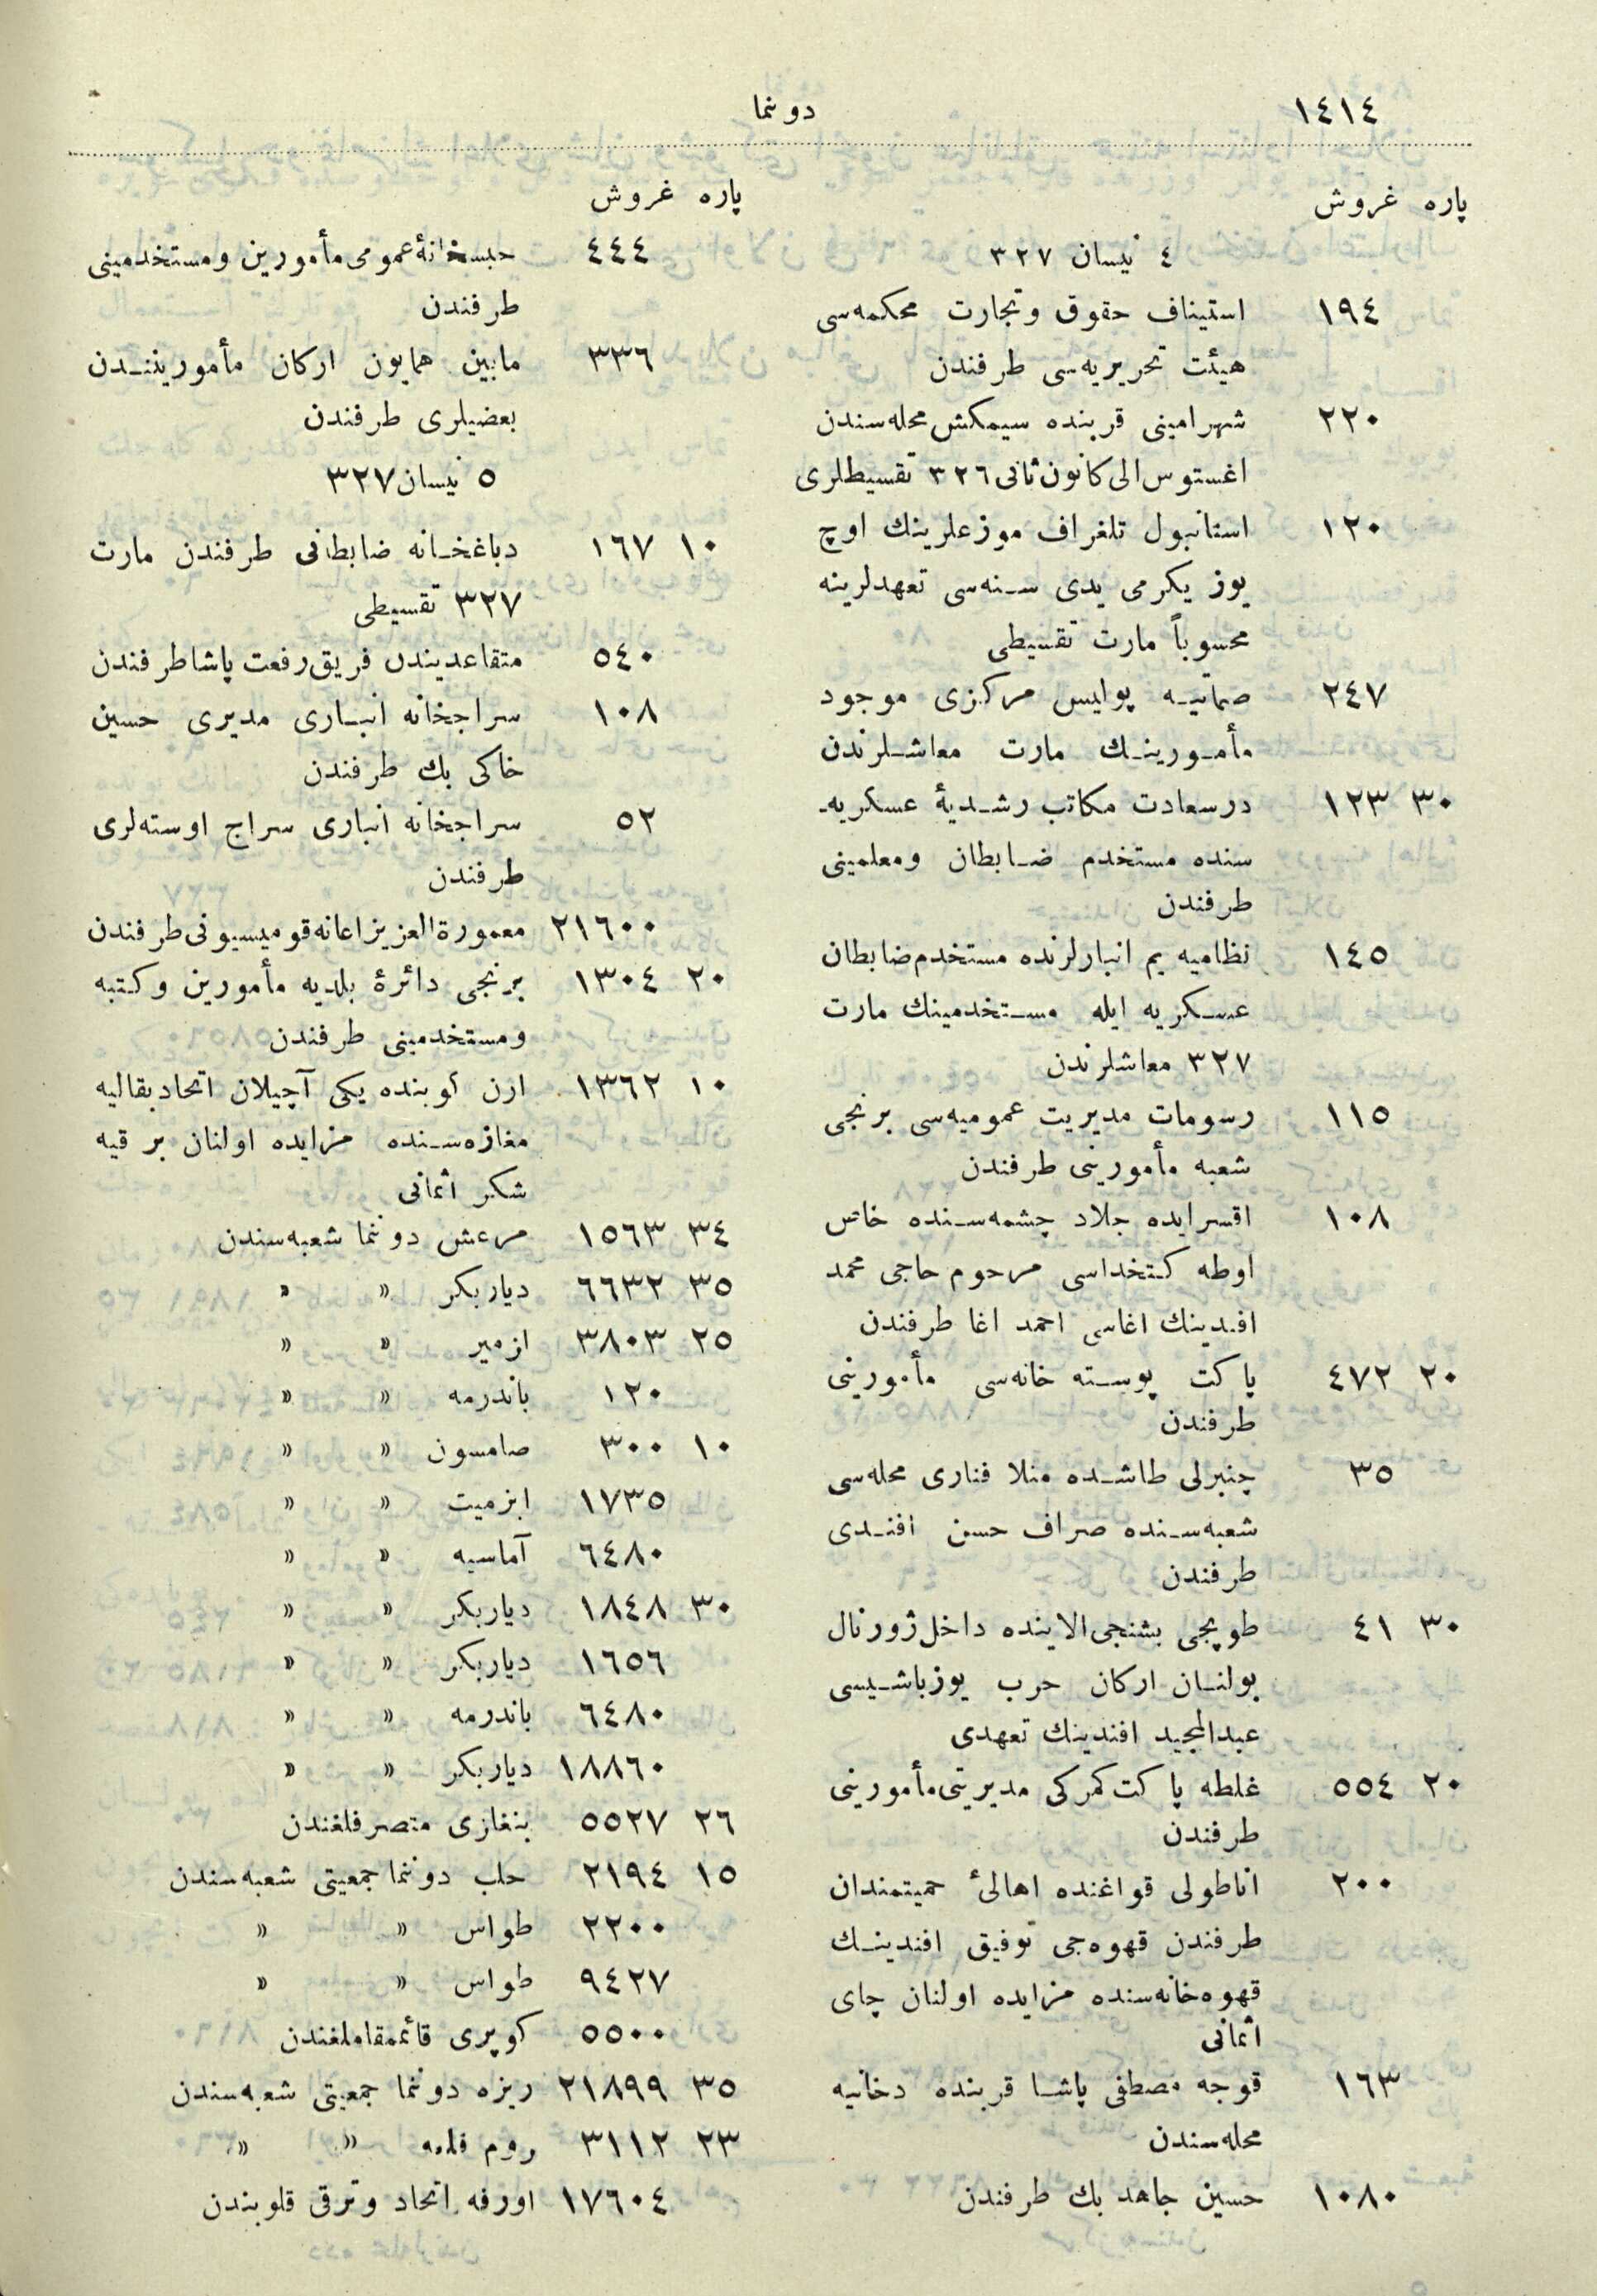 ١٤١٤
دوننما
پاره غروش
٤ نيسان ٣٢٧
١٩٤ استيناف حقوق وتجارت محكمه‌سى
هيئت تحريريه‌سى طرفندن
٢٢٠ شهرامينى قربنده سيمكش محله‌سندن
اغستوس الى كانون ثانى ٣٢٦ تقسيطلرى
١٢٠ استانبول تلغراف موزعلرينك اوچ
يوز يكرمى يدى سنه‌سى تعهدلرينه
محسوباً مارت تقسيطى
٢٤٧ صماتيه پوليس مركزى موجود
مأمورينك مارت معاشلرندن
٣٠ ١٢٣ درسعادت مكاتب رشديهٔ عسكريه‌
سنده مستخدم ضابطان ومعلمينى
طرفندن
١٤٥ نظاميه يم انبارلرنده مستخدم ضابطان
عسكريه ايله مستخدمينك مارت
٣٢٧ معاشلرندن
١١٥ رسومات مديريت عموميه‌سى برنجى
شعبه مأمورينى طرفندن
١٠٨ اقسرايده جلاد چشمه‌سنده خاص
اوطه كتخداسى مرحوم حاجى محمد
افندينك اغاسى احمد اغا طرفندن
٢٠ ٤٧٢ پاكت پوسته خانه‌سى مأمورينى
طرفندن
٣٥ چنبرلى طاشده منلا فنارى محله‌سى
شعبه‌سنده صراف حسن افندى
طرفندن
٣٠ ٤١ طوپجى بشنجى الاينده داخل ژورنال
بولنان اركان حرب يوزباشيسى
عبدالمجيد افندينك تعهدى
٢٠ ٥٥٤ غلطه پاكت كمركى مديريتى مأمورينى
طرفندن
٢٠٠ اناطولى قواغنده اهالىٔ حميتمندان
طرفندن قهوه‌جى توفيق افندينك
قهوه‌خانه‌سنده مزايده اولنان چاى
اثمانى
١٦٣ قوجه مصطفى پاشا قربنده دخانيه
محله‌سندن
١٠٨٠ حسين جاهد بك طرفندن
پاره غروش
٤٤٤ حبسخانهٔ عمومى مأمورين ومستخدمينى
طرفندن
٣٣٦ مابين همايون اركان مأمورينندن
بعضيلرى طرفندن
٥ نيسان ٣٢٧
١٠ ١٦٧ دباغخانه ضابطانى طرفندن مارت
٣٢٧ تقسيطى
٥٤٠ متقاعديندن فريق رفعت پاشا طرفندن
١٠٨ سراجخانه انبارى مديرى حسين
خاكى بك طرفندن
٥٢ سراجخانه انبارى سراج اوسته‌لرى
طرفندن
٢١٦٠٠ معمورة العزيز اعانه قوميسيونى طرفندن
٢٠ ١٣٠٤ برنجى دائرهٔ بلديه مأمورين وكتبه
ومستخدمينى طرفندن
١٠ ١٣٦٢ ارن كوينده يكى آچيلان اتحاد بقاليه
مغازه‌سنده مزايده اولنان بر قيه
شكر اثمانى
٣٤ ١٥٦٣ مرعش دوننما شعبه‌سندن
٣٥ ٦٦٣٢ دياربكر » »
٢٥ ٣٨٠٣ ازمير » »
١٢٠ باندرمه » »
١٠ ٣٠٠ صامسون » »
١٧٣٥ ازميت » »
٦٤٨٠ آماسيه » »
٣٠ ١٨٤٨ دياربكر » »
١٦٥٦ دياربكر » »
٦٤٨٠ باندرمه » »
١٨٨٦٠ دياربكر » »
٢٦ ٥٥٢٧ بنغازى متصرفلغندن
١٥ ٢١٩٤ حلب دوننما جمعيتى شعبه‌سندن
٢٢٠٠ طواس » »
٩٤٢٧ طواس » »
٥٥٠٠ كوپرى قائممقاملغندن
٣٥ ٢١٨٩٩ ريزه دوننما جمعيتى شعبه‌سندن
٢٣ ٣١١٢ روم قلعه » »
١٧٦٠٤ اورفه اتحاد وترقى قلوبندن